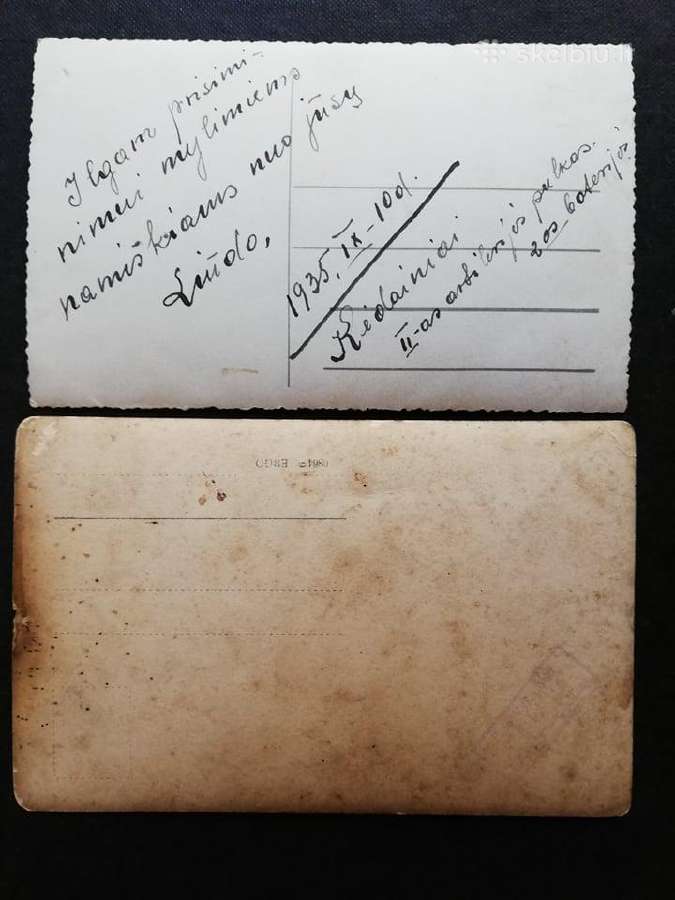 skelbiu.lt
Ilgam prisimi-
nimui mylimiems
namiškiams nuo jūsų
Liūdo,
1935. IX-10d.
Kėdainiai
II-as artilerijos pulkas.
2 os baterijos
ERGO